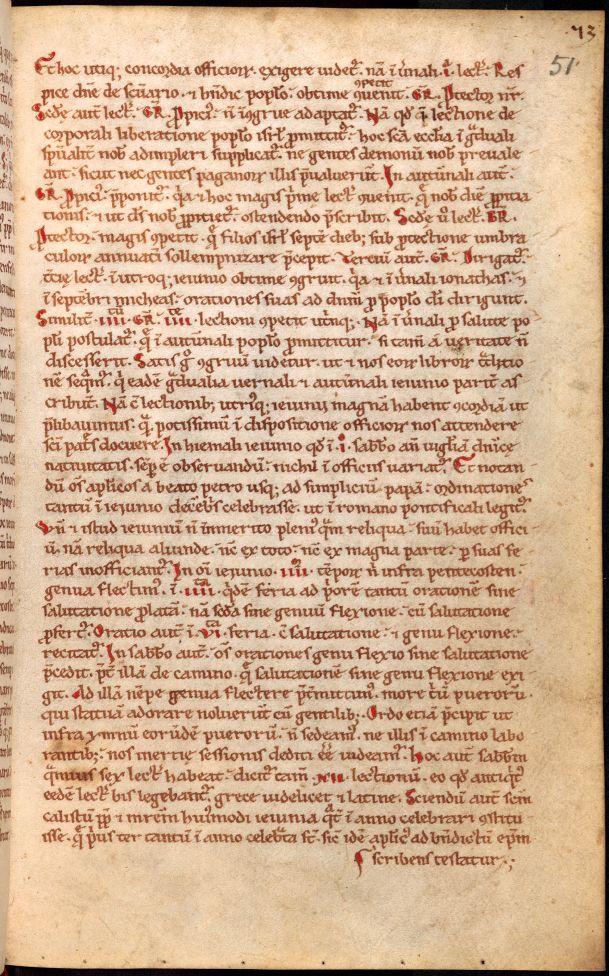 73
51
Et hoc utiq; concordia officioꝝ exigere uidet᷑. nā ī ūnali .i. lect᷑. Res
pice dn̄e de sc̄uario. ⁊ bn̄dic popłō. obtime ꝯuenit. ꝯpetit GR̄. Ꝓtector nr̄.
Scd̄e aut̄ lect᷑. GR̄. Ꝓpici᷒. n̄ īgrue adaptat᷑. Nā qd̄ p̄i lectione de
corporali liberatione popłō isrł ꝓmittit᷑. hoc sc̄a ecc̄ia ī gͣduali
sp̄ualit̄ nob̄ adimpleri supplicat᷑. ne gentes demonū nob̄ preuale
ant. sicut nec gentes paganoꝝ illis p̄ualuerūt. In autūnali aut̄.
GR̄. Ꝓpici᷒. p̄ponit᷑. q̄a ⁊ hoc magis p̄me lect᷑ ꝯuenit. q̄ nob̄ diē ꝓpitia
tionis. ⁊ ut ds̄ nob̄ ꝓpitiet᷑. ostendendo p̄scribit. Scd̄e ū lect᷑. GR̄.
Ꝓtector. magis ꝯpetit. q̄ filios isrł septē dieb; sub ꝓtectione umbra
culoꝝ annuati sollempnizare p̄cepit. Terciū aut̄. GR̄. Dirigat᷑.
t̄cię lect᷑. ī utroq; ieiunio obtime ꝯgruit. q̄a ⁊ ī ūnali ionathas. ⁊
ī septēbri micheas. orationes suas ad dn̄m ꝓ popłō dī dirigunt.
Similit̄ .iiii. GR̄. iiii. lectioni ꝯpetit utrīq;. Nā ī ūnali ꝓ salute po
pli postulat᷑. q̄ ī autūnali popłō ꝓmittitur. si tam̄ a ueritate n̄
discesserit. Satis g̊ ꝯgruū uidetur. ut ⁊ nos eoꝝ libroꝝ t̄ditio
nē seq̄m᷑. q̄i eadē gͣdualia uernali ⁊ autūnali ieiunio parit̄ as
cribūt. Nā c̄ lectionib; utri᷒q; ieiunii magnā habent ꝯcordiā ut
p̄libauimus. q̄ potissimū ī dispositione officioꝝ nos attendere
scī patr̄s docuere. In hiemali ieiunio qd̄ ī .i. sabb̄o an̄ uigił̄iā dn̄icę
natiuitatis. semp̄ ē obseruandū. nichil ī officiis uariat᷑. Et notan
dū os̄ apłicos a beato petro usq; ad simpliciū papā. ordinationes
tantū ī ieiunio decēb̄s celebrasse. ut ī romano pontificali legit᷑.
Vn̄ ⁊ istud ieiuniū n̄ īmerito pleni᷒ q̄m reliqua. suū habet offici
ū. nā reliqua aliunde. nc̄ ex toto. nc̄ ex magna parte. ꝑ suas fe
rias inofficiant᷑. In om̄ī ieiunio .iiii. tēpoꝝ n̄ infra pentecosten.
genua flectim᷒. ī .iiii. qdē feria ad p̄orē tantū orationē sine
salutatione ꝓlatā. nā scd̄a sine genuū flexione. cū salutatione
ꝓfert᷑. Oratio aut̄ ī .vi. feria. c̄ salutatione. ⁊ genu flexione.
recitat᷑. In sabb̄o aut̄. os̄ orationes genu flexio sine salutatione
p̄cedit. p̄t illā de camino. q̄ salutationē sine genu flexione exi
git. Ad illā nēpe genua flectere p̄t̄mittim᷒. more t̄ū pueroꝝ.
qui statuā adorare noluerūt cū gentilib;. Ordo etiā p̄cipit ut
infra ymnū eorūdē pueroꝝ. n̄ sedeam᷒. ne illis ī camino labo
rantib; nos inertię sessionis dediti eē̄ uideam᷑. Hoc aut̄ sabbm̄
q̄muis sex lect᷑ habeat. dicit᷑ tam̄ .xii. lectionū. eo qd̄ antiq᷒it᷒
eedē lect᷑ bis legebant᷑. grece uidelicet ⁊ latine. Sciendū aut̄ scm̄
calistū pp̄ ⁊ mr̄em hui᷒modi ieiunia q̄t̄ ī anno celebrari ꝯstitu
isse. q̄ p̄us ter tantū ī anno celebͣta st̄. sic̄ idē apłic᷒ ad bn̄dictū ep̄m
scribens testatur.;